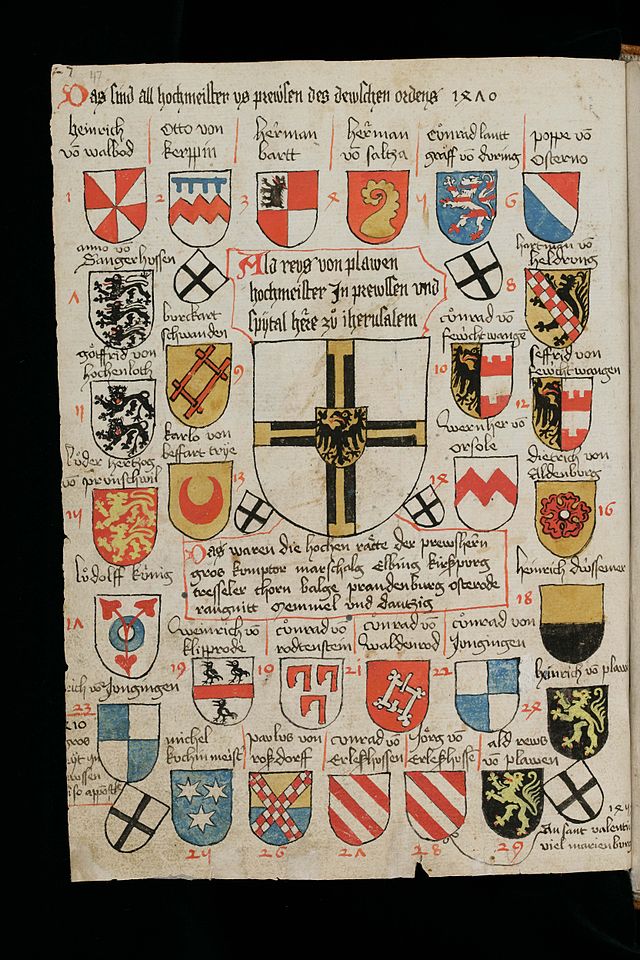 47
Das sind all hochmeister vs prewsen des dewschen ordens 1410
heinrich
vo walbod
Otto von
kerppin
herman
bartt
herman
vo saltza
Conrad lant
graff vo during
poppe vo
Osterno
1
2
3
4
5
6
anno vo
Sangerhyssen
hartman vo
heldrung
Ald reys von plawen
hochmeister In prewssen und
spytal here zu iherusalem
7
8
burckart
schwanden
conrad vo
fewchtwangen
gotfrid von
hochenloch
seffrid von
fewchtwangen
9
10
11
12
karlo von
beffart trye
Wernher vo
orsole
luder hertzog
vo prunschwil
dietrich von
Aldenburg
13
14
15
16
Das waren die hochen rätte der prewshern
gros komptor marschalg elbing kirspurg
tresseler thorn balge prandenburg osterode
rangnitt memmel und dantzig
ludolff kunig
heinrich dussemer
17
18
Weinrich vo
kliprode
conrad vo
rodtenstein
conrad vo
Waldenrod
conrad von
Jungingen
19
10
21
22
rich vo Jungingen
heinrich vo plawe
23
24
michel
kuchinmeist
pavlus von
rosdorff
conrad vo
Erleshossen
Jörg vo
Erleshosse
ald rews
vo plawen
25
26
27
28
29
An sant valentin
viel marienburg